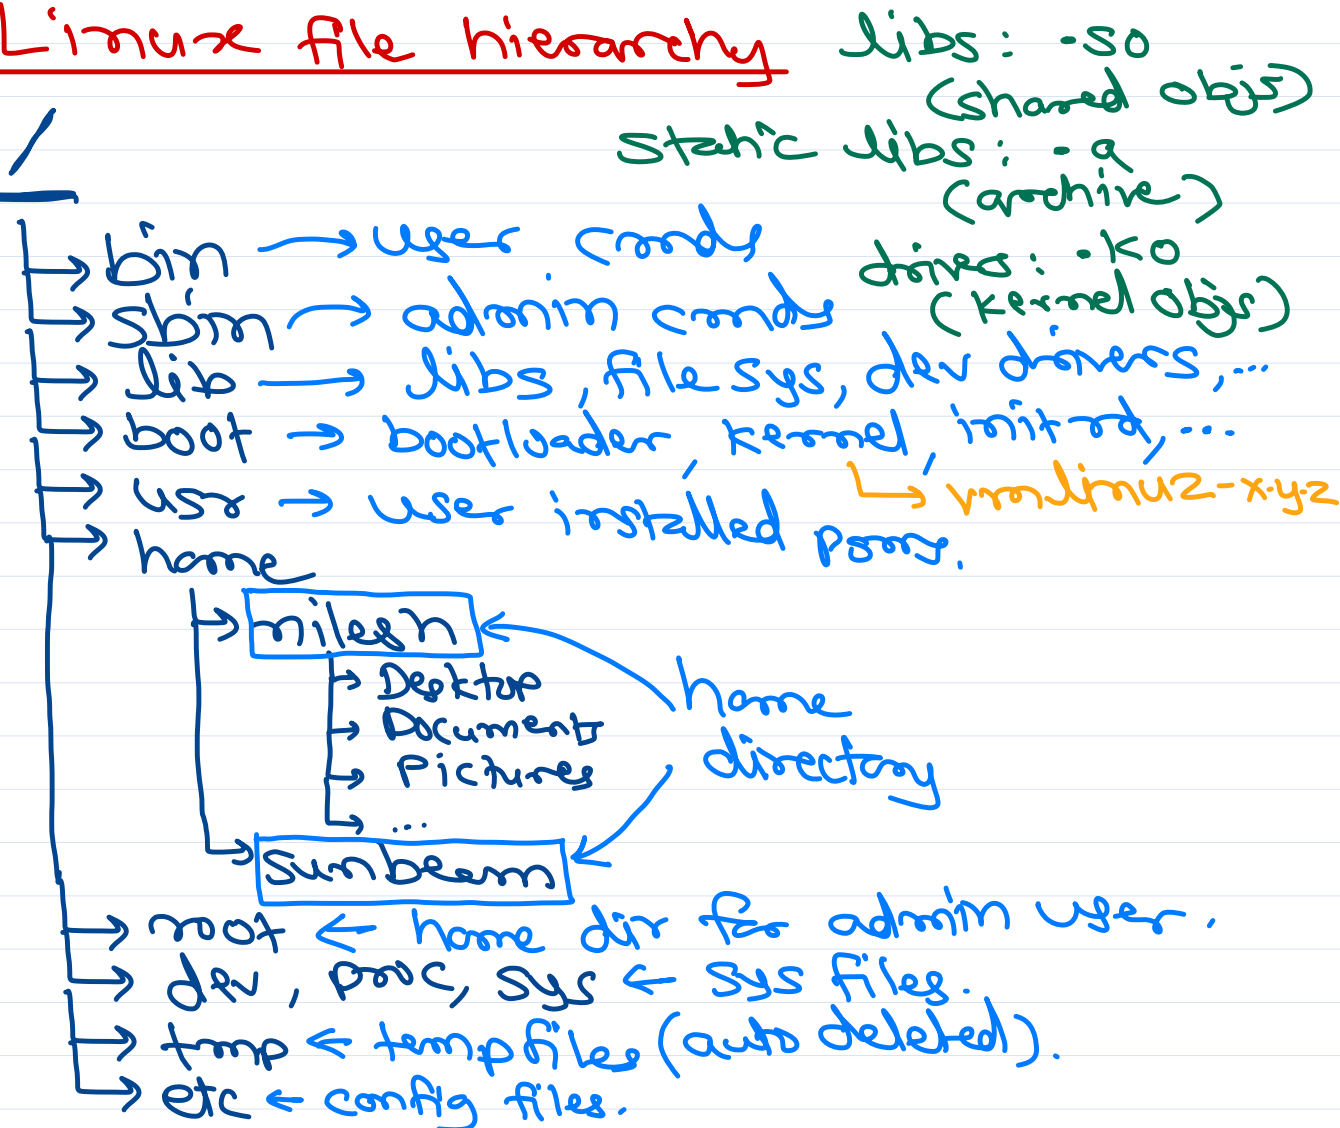 Linux file hierarchy
libs: .so
(shared objs)
static libs: .a
(archive)
drives: .ko
(kernel objs)
/
bin → user cmds
sbin → admin cmds
lib → libs, file sys, dev drivers, ...
boot → bootloader, kernel, initrd, ...
vmlinuz-x.y.z
usr → user installed pgms.
home
nilesh
Desktop
Documents
Pictures
...
home
directory
sunbeam
root ← home dir for admin user.
dev, proc, sys ← sys files.
tmp ← temp files (auto deleted).
etc ← config files.